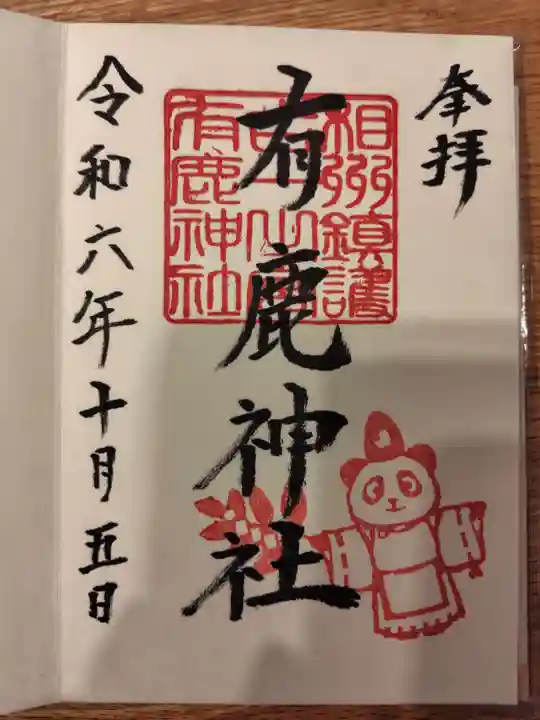 奉拝
有鹿神社
相州鎮護
有鹿神社
令和六年十月五日